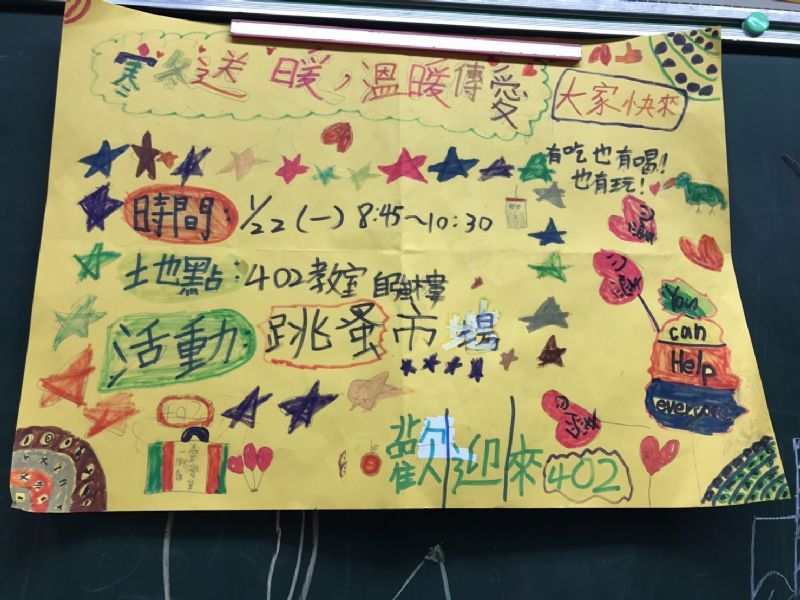 寒冬送暖，溫暖傳愛
大家快來
有吃也有喝！
也有玩！
時間：1/22（一）8:45～10:30
地點：402教室 自強樓
活動：跳蚤市場
You
can
Help
everyone
402
歡迎來402